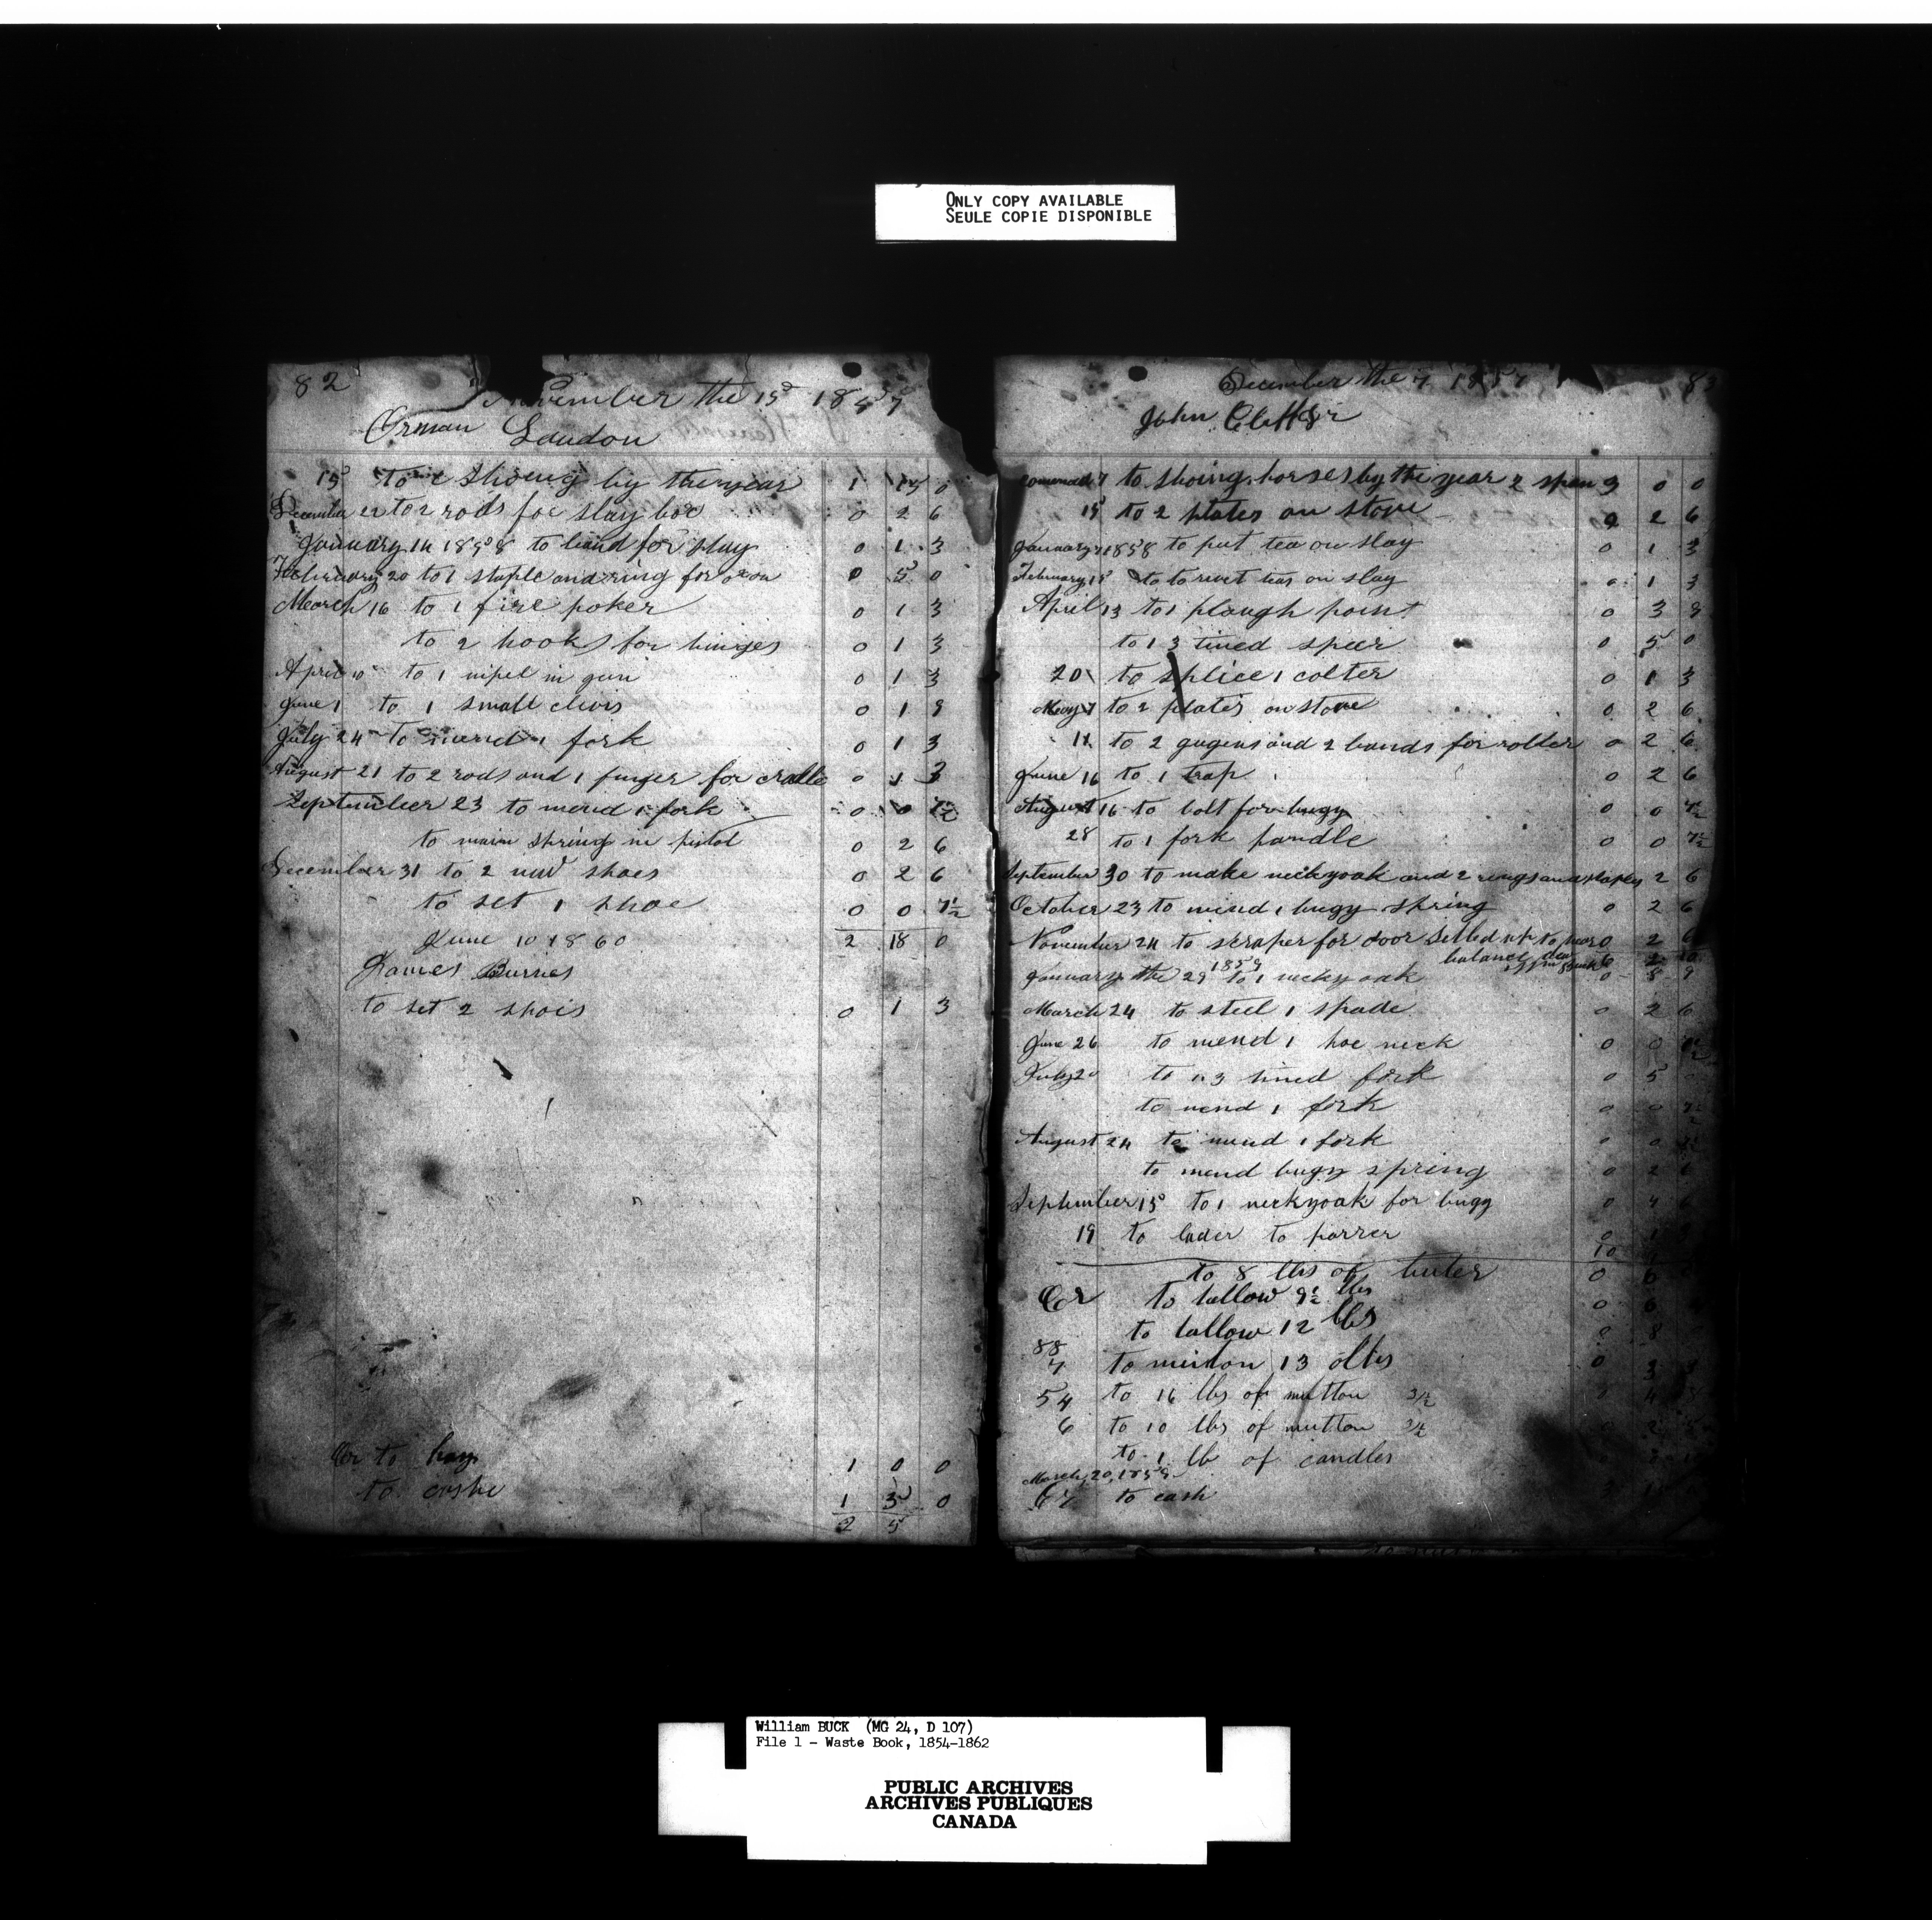 ONLY COPY AVAILABLE
SEULE COPIE DISPONIBLE
82
November the 15 1857
Orman Loudon
15 to shoeing by the year 1 15 0
December 22 to 2 rods for slay box 0 2 6
January 14 1858 to band for slay 0 1 3
February 20 to 1 staple and ring for oxon 0 5 0
March 16 to 1 fire poker 0 1 3
to 2 hooks for hinges 0 1 3
April 10 to 1 nipel in gun 0 1 3
June 1 to 1 small clivis 0 1 9
July 24 to mend 1 fork 0 1 3
August 21 to 2 rods and 1 finger for cradle 0 1 3
September 23 to mend 1 fork 0 0 7½
to main spring in pistol 0 2 6
December 31 to 2 new shoes 0 2 6
to set 1 shoe 0 0 7½
2 18 0
June 10 1860
James Burnes
to set 2 shois 0 1 3
Cr to hay 1 0 0
to cashe 1 5 0
2 5
83
December the 7 1857
John
7 to shoing horses by the year 2 span 3 0 0
15 to 2 plates on stove 0 2 6
January 1858 to put tea on slay 0 1 3
February 15 to rivet teas on slay 0 1 3
April 13 to 1 plough point 0 3 9
to 1 3 tined speer 0 5 0
20 to splice 1 colter 0 1 3
May 7 to 2 plates on stove 0 2 6
14 to 2 gugens and 2 bands for roller 0 2 6
June 16 to 1 trap 0 2 6
August 16 to bolt for bugy 0 0 7½
28 to 1 fork handle 0 0 7½
September 30 to make neckyoak and 2 rings and staples 2 6
October 23 to mend 1 bugy spring 0 2 6
November 24 to scraper for door Setled up to 0 2 6
balance due
January the 29 1859 to 1 neckyoak 0 8 9
March 24 to steel 1 spade 0 2 6
June 26 to mend 1 hoe neck 0 0
July 20 to 1 3 tined fork 0 5
to mend 1 fork 0 0 7½
August 24 to mend 1 fork 0 0 7½
to mend bugy spring 0 2 6
September 15 to 1 neckyoak for bugy 0 4
19 to lader to 0 1
10
to 8 lbs of buter 0 6
Cr to tallow 9½ lbs 0 6
to tallow 12 lbs 0 8
88
7 to muton 13 olbs 0 3
54 to 16 lbs of mutton 3½ 4
6 to 10 lbs of mutton 3½ 2
to 1 lb of candles
March 20, 1859
67 to cash
William BUCK (MG 24, D 107)
File 1 - Waste Book, 1854-1862
PUBLIC ARCHIVES
ARCHIVES PUBLIQUES
CANADA